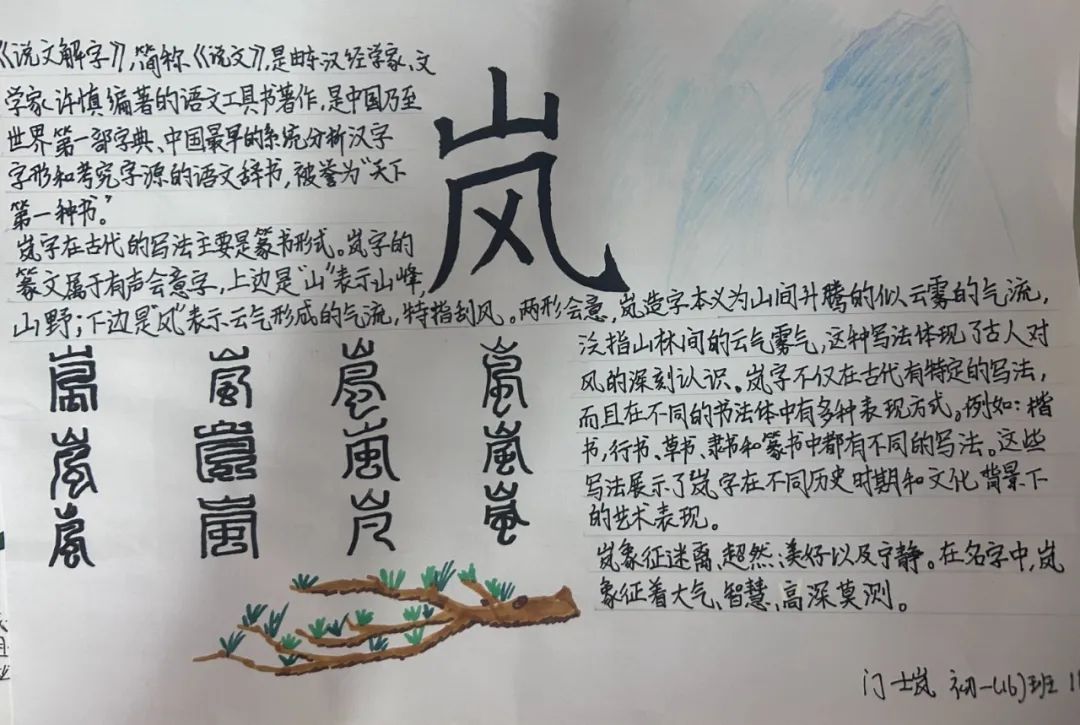 《说文解字》,简称《说文》,是由东汉经学家、文
学家许慎编著的语文工具书著作,是中国乃至
世界第一部字典、中国最早的系统分析汉字
字形和考究字源的语文辞书,被誉为“天下
第一种书”
岚
岚字在古代的写法主要是篆书形式。岚字的
篆文属于有声会意字,上边是“山”表示山峰,
山野;下边是“风”表示云气形成的气流,特指刮风。两形会意,岚造字本义为山间升腾的似云雾的气流,
泛指山林间的云气雾气,这种写法体现了古人对
风的深刻认识。岚字不仅在古代有特定的写法,
而且在不同的书法体中有多种表现方式。例如:楷
书,行书、草书、隶书和篆书中都有不同的写法。这些
写法展示了岚字在不同历史时期和文化背景下
的艺术表现。
岚象征迷离、超然、美好以及宁静。在名字中,岚
象征着大气、智慧、高深莫测。
门士岚 初一(16)班